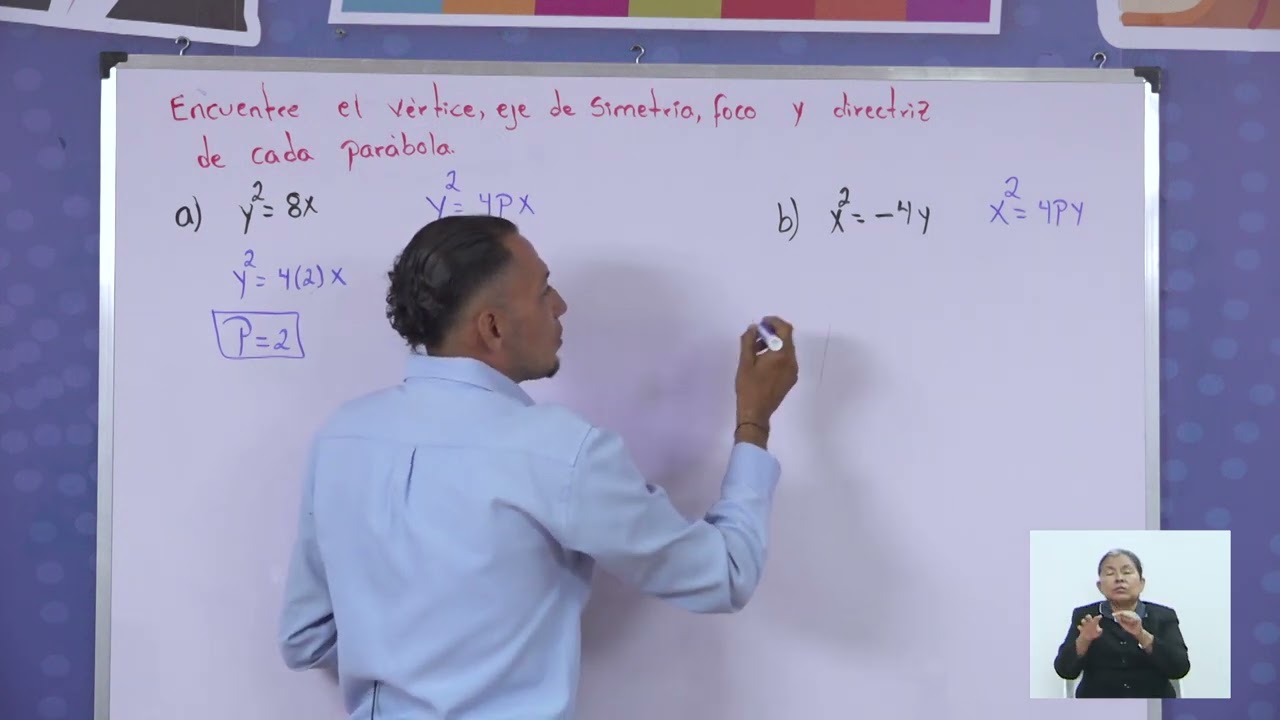 Encuentre el vértice, eje de Simetría, foco y directriz
de cada parábola.
a) y² = 8x
y² = 4px
b) x² = -4y
x² = 4py
y² = 4(2)x
P = 2